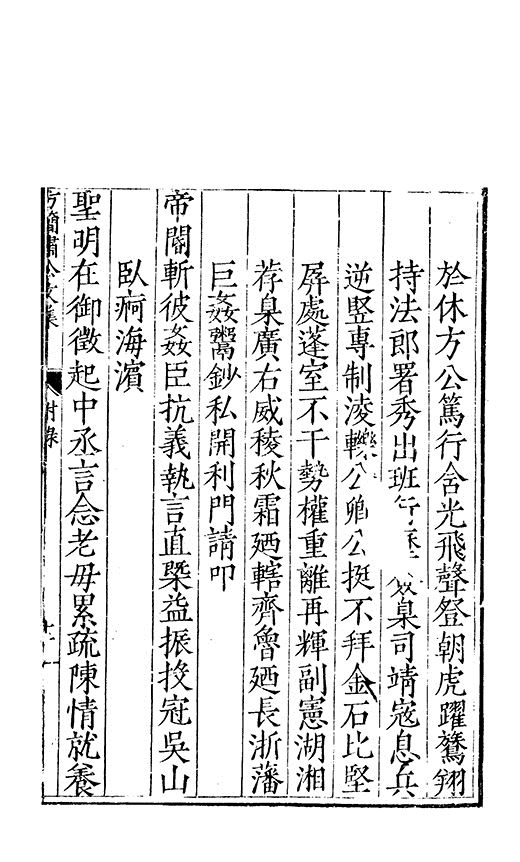 於休方公篤行含光飛聲登朝虎躍鵞翔
持法郎署秀出班 臬司靖寇息兵
逆竪專制淩轢公卿公挺不拜金石比堅
屏處蓬室不干勢權重離再輝副憲湖湘
荐臬廣右威稜秋霜廼轄齊魯廼長浙藩
巨姦鬻鈔私開利門請叩
帝閽斬彼姦臣抗義執言直槩益振投冠吳山
卧痾海濵
聖明在御徵起中丞言念老母累疏陳情就養
方簡肅公文集
附錄